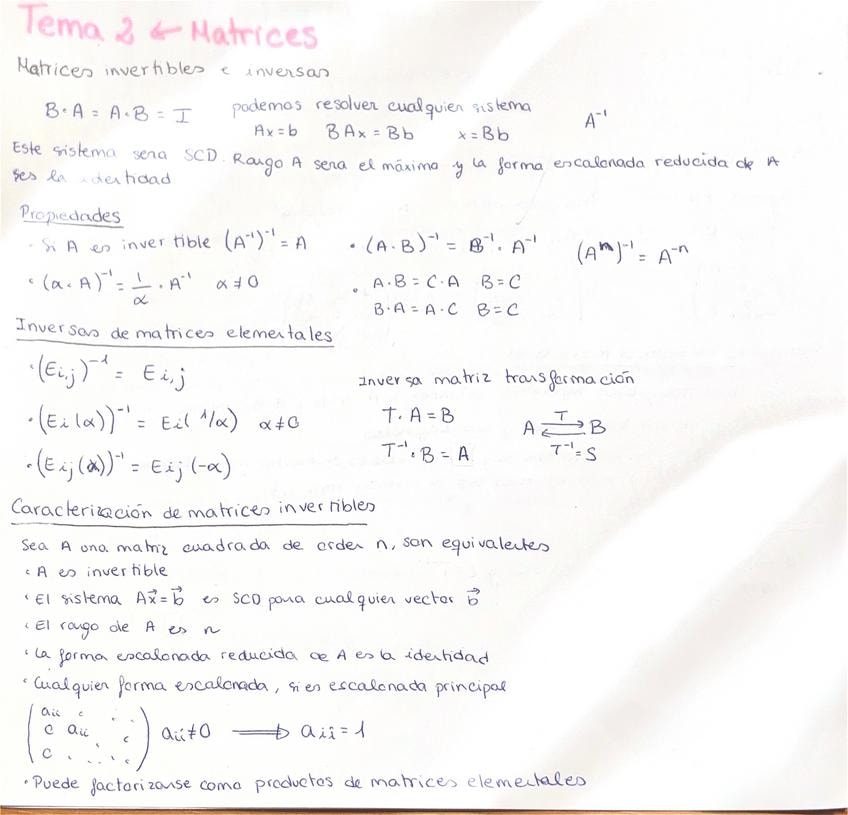 Tema 2 ← Matrices
Matrices invertibles e inversas
B·A = A·B = I podemos resolver cualquier sistema A⁻¹
Ax = b BAx = Bb x = Bb
Este sistema sera SCD. Rango A sera el máximo y la forma escalonada reducida de A
ses la identidad
Propiedades
· Si A es invertible (A⁻¹)⁻¹ = A
· (α·A)⁻¹ = 1/α · A⁻¹ α ≠ 0
· (A·B)⁻¹ = B⁻¹·A⁻¹ (Aᵐ)⁻¹ = A⁻ⁿ
· A·B = C·A B = C
B·A = A·C B = C
Inversas de matrices elementales
· (Ei,j)⁻¹ = Ei,j
· (Ei(α))⁻¹ = Ei(1/α) α ≠ 0
· (Eij(α))⁻¹ = Eij(-α)
Inversa matriz transformación
T·A = B
T⁻¹·B = A
A ⇄ B
T
T⁻¹ = S
Caracterización de matrices invertibles
Sea A una matriz cuadrada de orden n, son equivalentes
· A es invertible
· El sistema Ax⃗ = b⃗ es SCD para cualquier vector b⃗
· El rango de A es n
· La forma escalonada reducida de A es la identidad
· Cualquier forma escalonada, si es escalonada principal
aii c . .
c aii . c
c . . . c
aii ≠ 0 ⟹ aii = 1
· Puede factorizarse como productos de matrices elementales